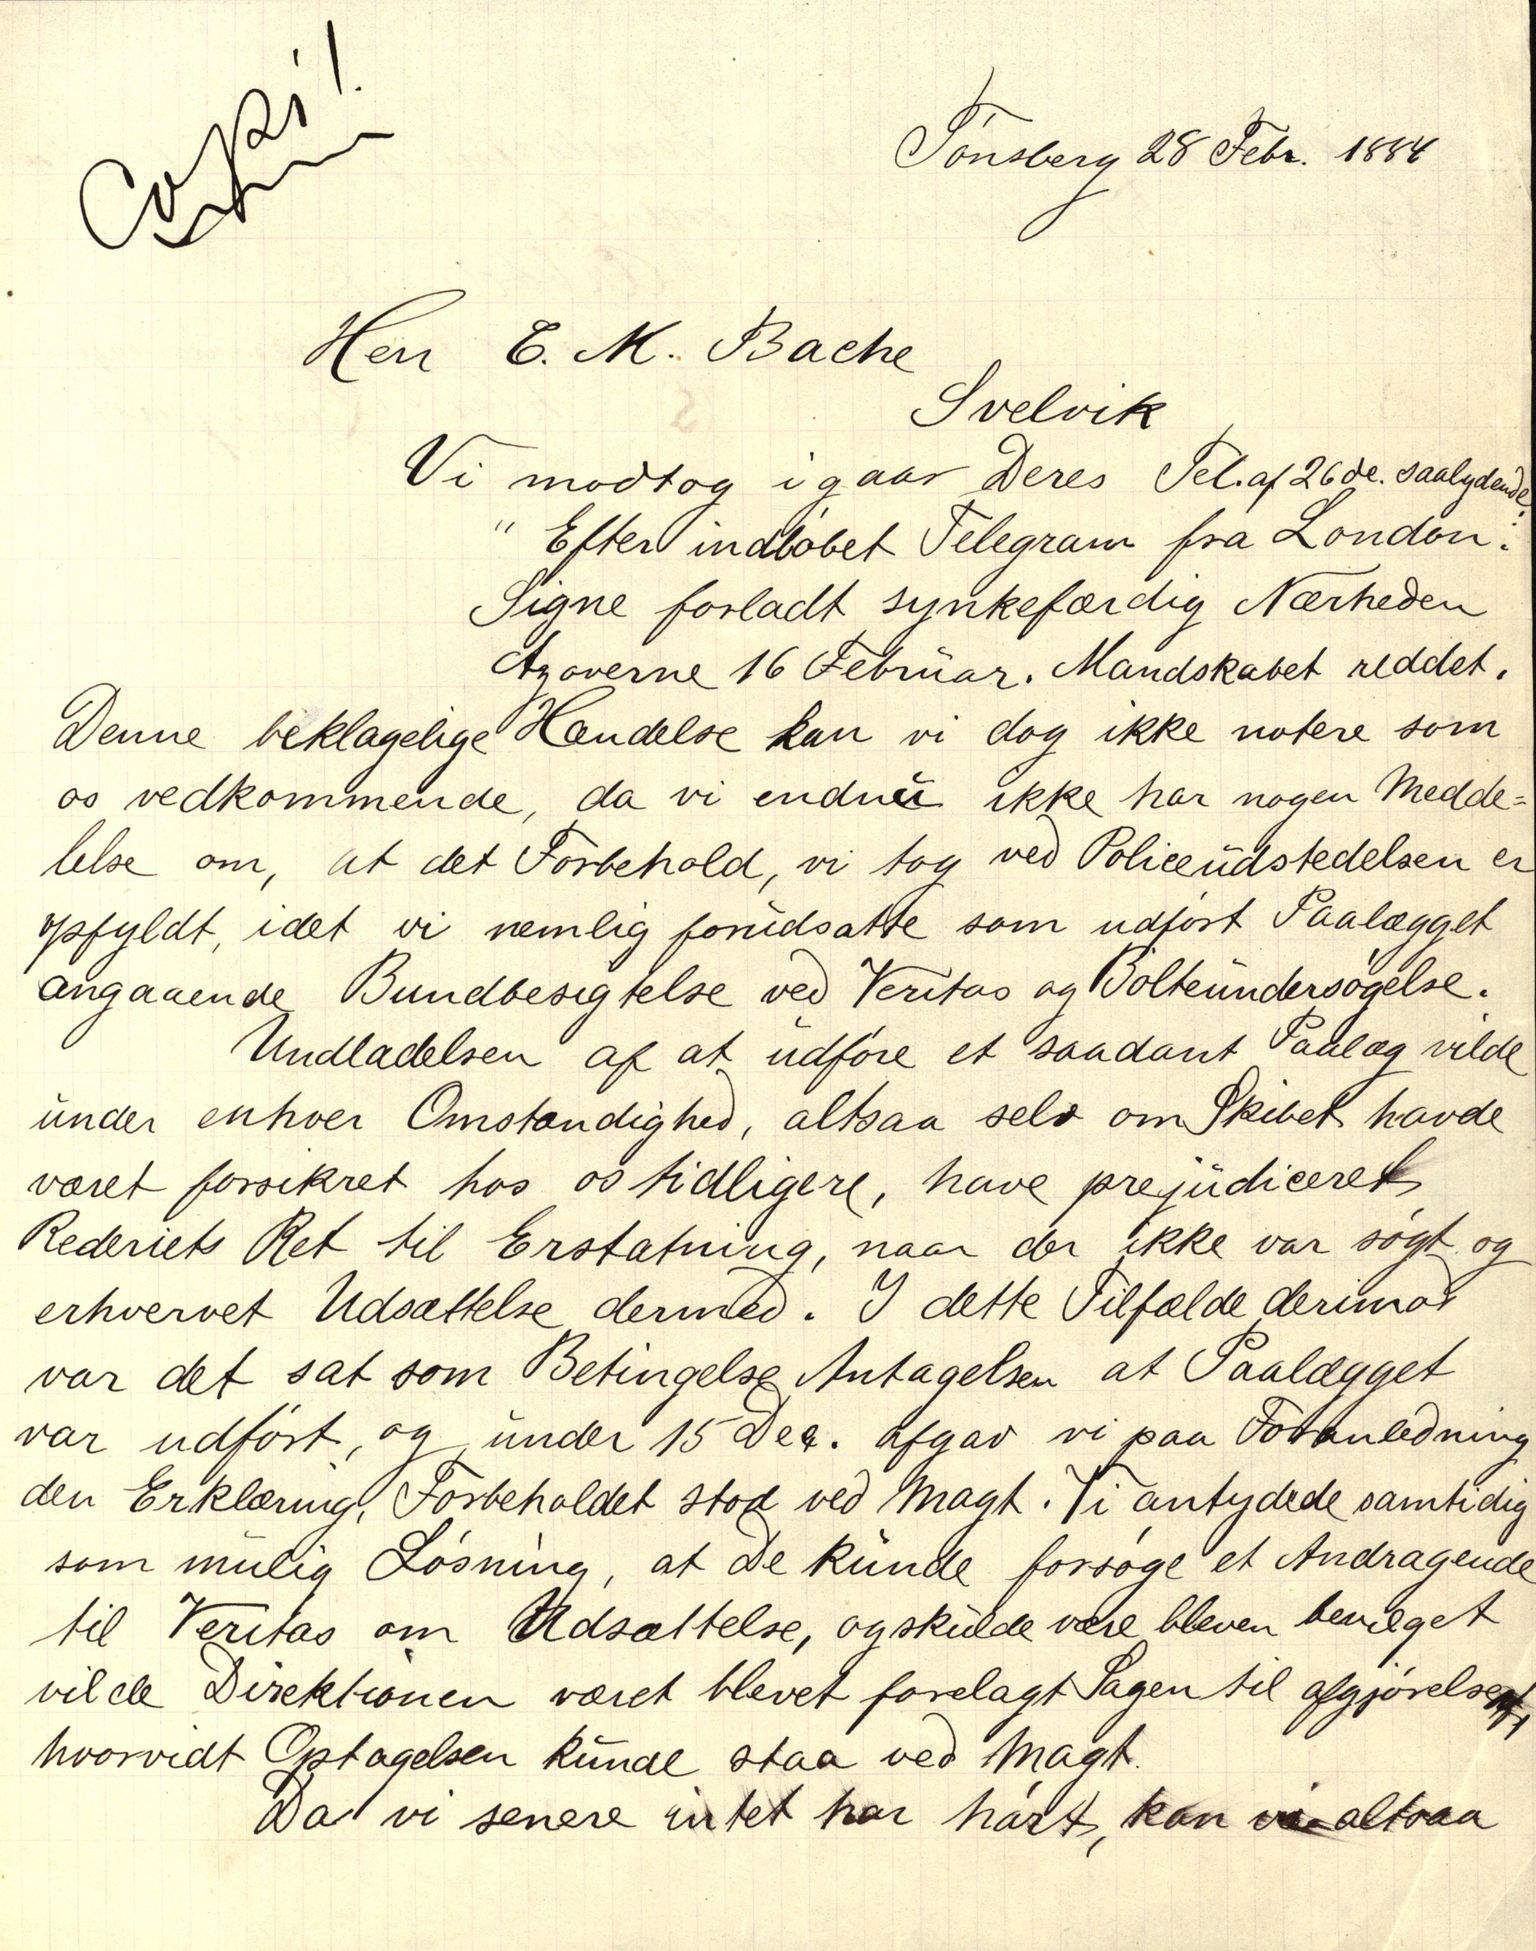 Copi!
Tönsberg 28 Febr. 1884
Herr E. M. Bache
Svelvik
Vi modtog igaar Deres Tel. af 26de. saalydende:
"Efter indlöbet Telegram fra London:
Signe forladt synkefærdig Nærheden
Azoverne 16 Februar. Mandskabet reddet.
Denne beklagelige Hændelse kan vi dog ikke notere som
os vedkommende, da vi endnu ikke har nogen Medde=
lelse om, at det Forbehold, vi tog ved Policeudstedelsen er
opfyldt, idet vi nemlig forudsatte som udfört Paalægget
angaaende Bundbesigtelse ved Veritas og Bolteundersögelse.
Undladelsen af at udföre et saadant Paalæg vilde
under enhver Omstændighed, altsaa selv om Skibet havde
været forsikret hos os tidligere, have prejudiceret
Rederiets Ret til Erstatning, naar der ikke var sögt og
erhvervet Udsættelse dermed. I dette Tilfælde derimod
var det sat som Betingelse Antagelsen at Paalægget
var udfört, og under 15 Dec. afgav vi paa Foranledning
den Erklæring, Forbeholdet stod ved Magt. Vi antydede samtidig
som mulig Lösning, at De kunde forsöge et Andragende
til Veritas om Udsættelse, og skulde være bleven bevilget
vilde Direktionen været blevet forelagt Sagen til afgjörelse
hvorvidt Optagelsen kunde staa ved Magt.
Da vi senere intet har hört, kan vi altsaa